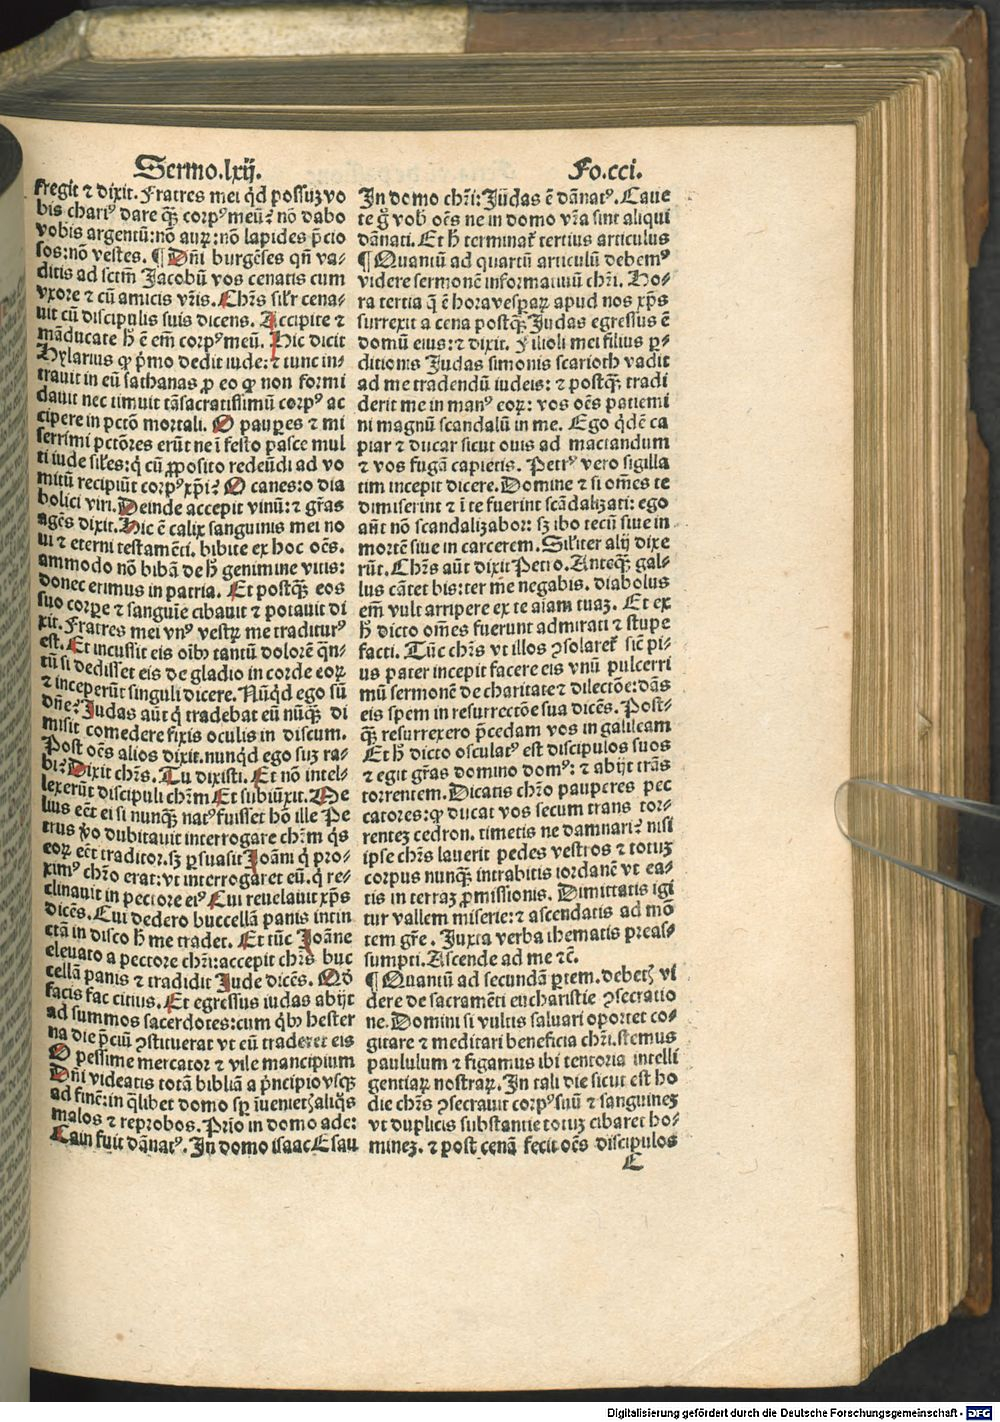 Sermo.lxij.
Fo.cci.
fregit ⁊ dixit. Fratres mei qd̄ possuꝫ vo
bis chariꝰ dare qꝫ̄ corpꝰ meū? nō dabo
vobis argentū: nō auꝝ: nō lapides p̄cio
sos: nō vestes. ¶ Dn̄i burgēses qn̄ va⸗
ditis ad sctm̄ Jacobū vos cenatis cum
vxore ⁊ cū amicis vr̄is. Chr̄s sil'r cena⸗
uit cū discipulis suis dicens. Accipite ⁊
māducate h̄ ē em̄ corpꝰ meū. Hic dicit
Hylarius ꝙ p̄mo dedit iude: ⁊ tunc in⸗
trauit in eū sathanas ꝓ eo ꝙ non formi
dauit nec timuit tā sacratissimū corpꝰ ac
cipere in pctō mortali. O pauꝑes ⁊ mi
serrimi pctōres erūt ne ī festo pasce mul
ti iude sil'es: q̄ cū ꝓposito redeūdi ad vo
mitū recipiūt corpꝰ xp̄i? O canes: o dia
bolici viri. Deinde accepit vinū: ⁊ gr̄as
agēs dixit. Hic ē calix sanguinis mei no
ui ⁊ eterni testamēti. bibite ex hoc oēs.
ammodo nō bibā de h̄ genimine vitis:
donec erimus in patria. Et postqꝫ̄ eos
suo corꝑe ⁊ sanguīe cibauit ⁊ potauit di
xit. Fratres mei vnꝰ vestꝝ me traditurꝰ
est. Et incussit eis oībꝰ tantū dolorē qn̄⸗
tū si dedisset eis de gladio in corde eoꝝ
⁊ inceperūt singuli dicere. Nūqd ego sū
dn̄e? Judas aūt q̄ tradebat eū nūqꝫ̄ di
misit comedere fixis oculis in discum.
Post oēs alios dixit. nunqd ego suꝫ ra⸗
bi? Dixit chr̄s. Tu dixisti. Et nō intel⸗
lexerūt discipuli chr̄m Et subiūxit. Me
lius eēt ei si nunqꝫ̄ natꝰ fuisset hō ille Pe
trus v̄o dubitauit interrogare chr̄m qs̄
eoꝝ eēt traditor. sꝫ ꝑsuasit Joāni q̄ pro⸗
ximꝰ chr̄o erat: vt interrogaret eū. q̄ re⸗
clinauit in pectore eiꝰ Cui reuelauit xp̄s
dicēs. Cui dedero buccellā panis intin
ctā in disco h̄ me tradet. Et tūc Joāne
eleuato a pectore chr̄i: accepit chr̄s buc
cellā panis ⁊ tradidit Jude dicēs. Qd̄
facis fac citius. Et egressus iudas abijt
ad summos sacerdotes: cum qb̄ꝰ hester
na die p̄ciū ꝯstituerat vt eū traderet eis
O pessime mercator ⁊ vile mancipium
Dn̄i videatis totā bibliā a p̄ncipio vsqꝫ
ad finē: in q̄libet domo sꝑ īuenietꝭ aliqs̄
malos ⁊ reprobos. Prīo in domo ade:
Cain fuit dānatꝰ. In domo isaac Esau
In domo chr̄i: Judas ē dānatꝰ. Caue
te g̊ vob̄ oēs ne in domo vr̄a sint aliqui
dānati. Et h̄ terminat' tertius articulus
¶ Quantū ad quartū articulū debemꝰ
videre sermonē informatiuū chr̄i. Ho⸗
ra tertia q̄ ē hora vesꝑaꝝ apud nos xp̄s
surrexit a cena postqꝫ̄ Judas egressus ē
domū eius: ⁊ dixit. Filioli mei filius ꝑ⸗
ditionis Judas simonis scarioth vadit
ad me tradendū iudeis: ⁊ postqꝫ̄ tradi
derit me in manꝰ eoꝝ: vos oēs patiemi
ni magnū scandalū in me. Ego qd̄ē ca
piar ⁊ ducar sicut ouis ad mactandum
⁊ vos fugā capietis. Petrꝰ vero sigilla
tim incepit dicere. Domine ⁊ si om̄es te
dimiserint ⁊ ī te fuerint scādalizati: ego
aūt nō scandalizabor: sꝫ ibo tecū siue in
mortē siue in carcerem. Sil'iter alij dixe
rūt. Chr̄s aūt dixit Petro. Anteqꝫ̄ gal⸗
lus cātet bis: ter me negabis. diabolus
em̄ vult arripere ex te aīam tuaꝫ. Et ex
h̄ dicto om̄es fuerunt admirati ⁊ stupe
facti. Tūc chr̄s vt illos ꝯsolaret' sic̄ pi⸗
us pater incepit facere eis vnū pulcerri
mū sermonē de charitate ⁊ dilectōe: dās
eis spem in resurrectōe sua dicēs. Post⸗
qꝫ̄ resurrexero p̄cedam vos in galileam
Et h̄ dicto osculatꝰ est discipulos suos
⁊ egit gr̄as domino domꝰ: ⁊ abijt trās
torrentem. Dicatis chr̄o pauperes pec
catores: ꝙ ducat vos secum trans tor⸗
renteꝫ cedron. timetis ne damnari? nisi
ipse chr̄s lauerit pedes vestros ⁊ totuꝫ
corpus nunqꝫ̄ intrabitis iordanē vt ea⸗
tis in terraꝫ ꝓmissionis. Dimittatis igi
tur vallem miserie: ⁊ ascendatis ad mō
tem gr̄e. Juxta verba thematis preas⸗
sumpti. Ascende ad me ⁊c̄.
¶ Quantū ad secundā ꝑtem. debetꝭ vi
dere de sacramēti eucharistie ꝯsecratio
ne. Domini si vultis saluari oportet co⸗
gitare ⁊ meditari beneficia chr̄i. stemus
paululum ⁊ figamus ibi tentoria intelli
gentiaꝝ nostraꝝ. In tali die sicut est ho
die chr̄s ꝯsecrauit corpꝰ suū ⁊ sanguineꝫ
vt duplicis substantie totuꝫ cibaret ho⸗
mineꝫ. ⁊ post cenā fecit oēs discipulos
E
Digitalisierung gefördert durch die Deutsche Forschungsgemeinschaft - DFG